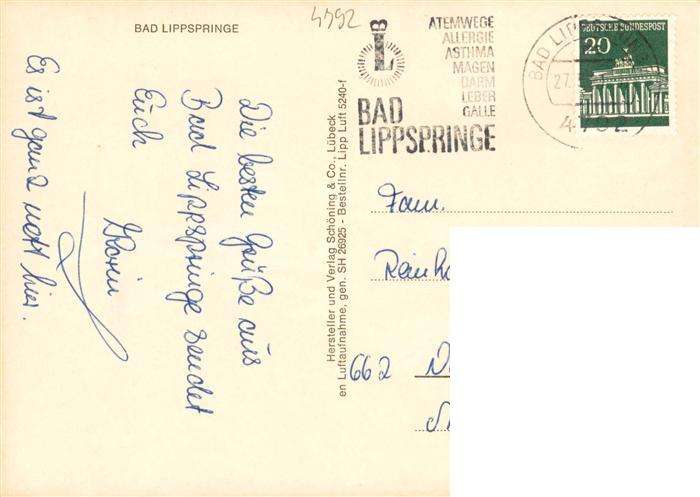 BAD LIPPSPRINGE
4792
ATEMWEGE
ALLERGIE
ASTHMA
MAGEN
DARM
LEBER
GALLE
BAD
LIPPSPRINGE
L
BAD LIPP
27.
4792
DEUTSCHE BUNDESPOST
20
Die besten Grüße aus
Bad Lippspringe sendet
Euch
Es ist ganz nett hier.
Hersteller und Verlag Schöning & Co., Lübeck
en Luftaufnahme, gen. SH 26925 - Bestellnr. Lipp Luft 5240-f
Fam.
Reinh
662